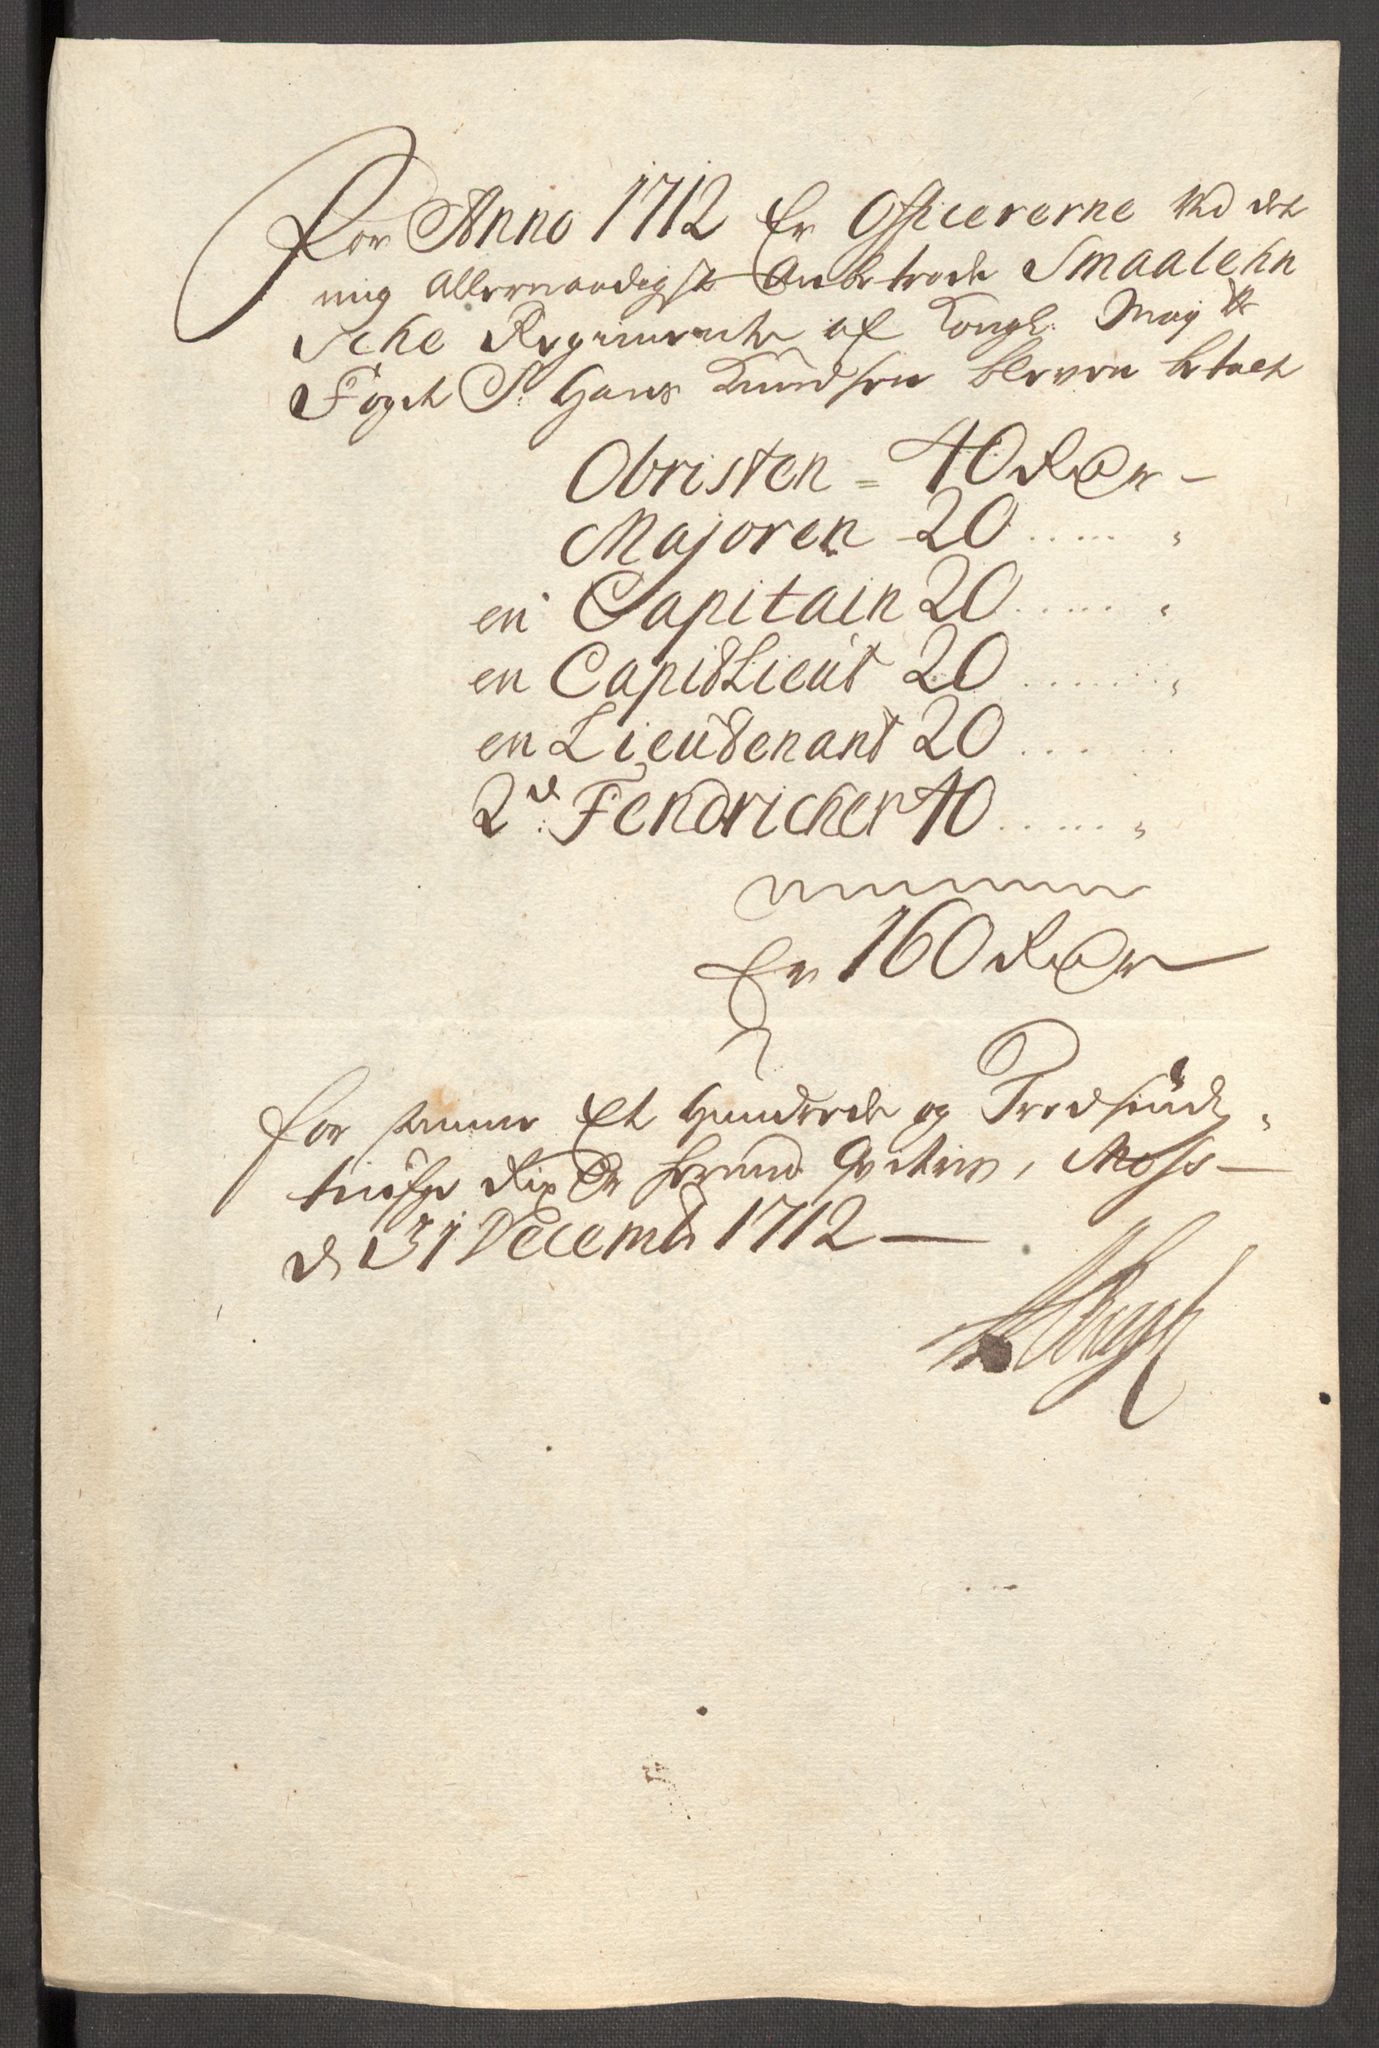 For Anno 1712 Er Officererne Ved det
mig allernaadigst Anbetrode Smaalehn
sche Regimente af Kongl: May ts
Foget Sr Hans Knudsen bleven betalt
Obristen = 40 Rdr –
Majoren – 20 ..... "
en Capitain 20 ..... "
en Capit Lieut 20 ...... "
en Lieutenant 20 ....
2de Fendricher 40 ...... "
Er 160 Rdr
for samme Et Hundrede og Tredsinds-
tiufve Rixdr herved Qviteris, Moss –
d 31 Decembr 1712 –